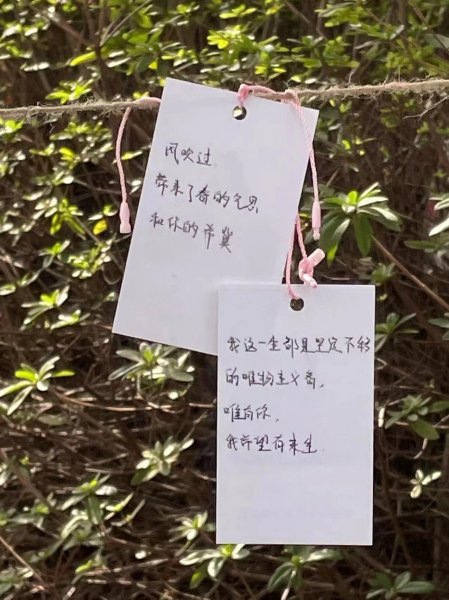 风吹过
带来了春的气息
和你的希冀
我这一生都是坚定不移
的唯物主义者,
唯有你,
我希望有来生